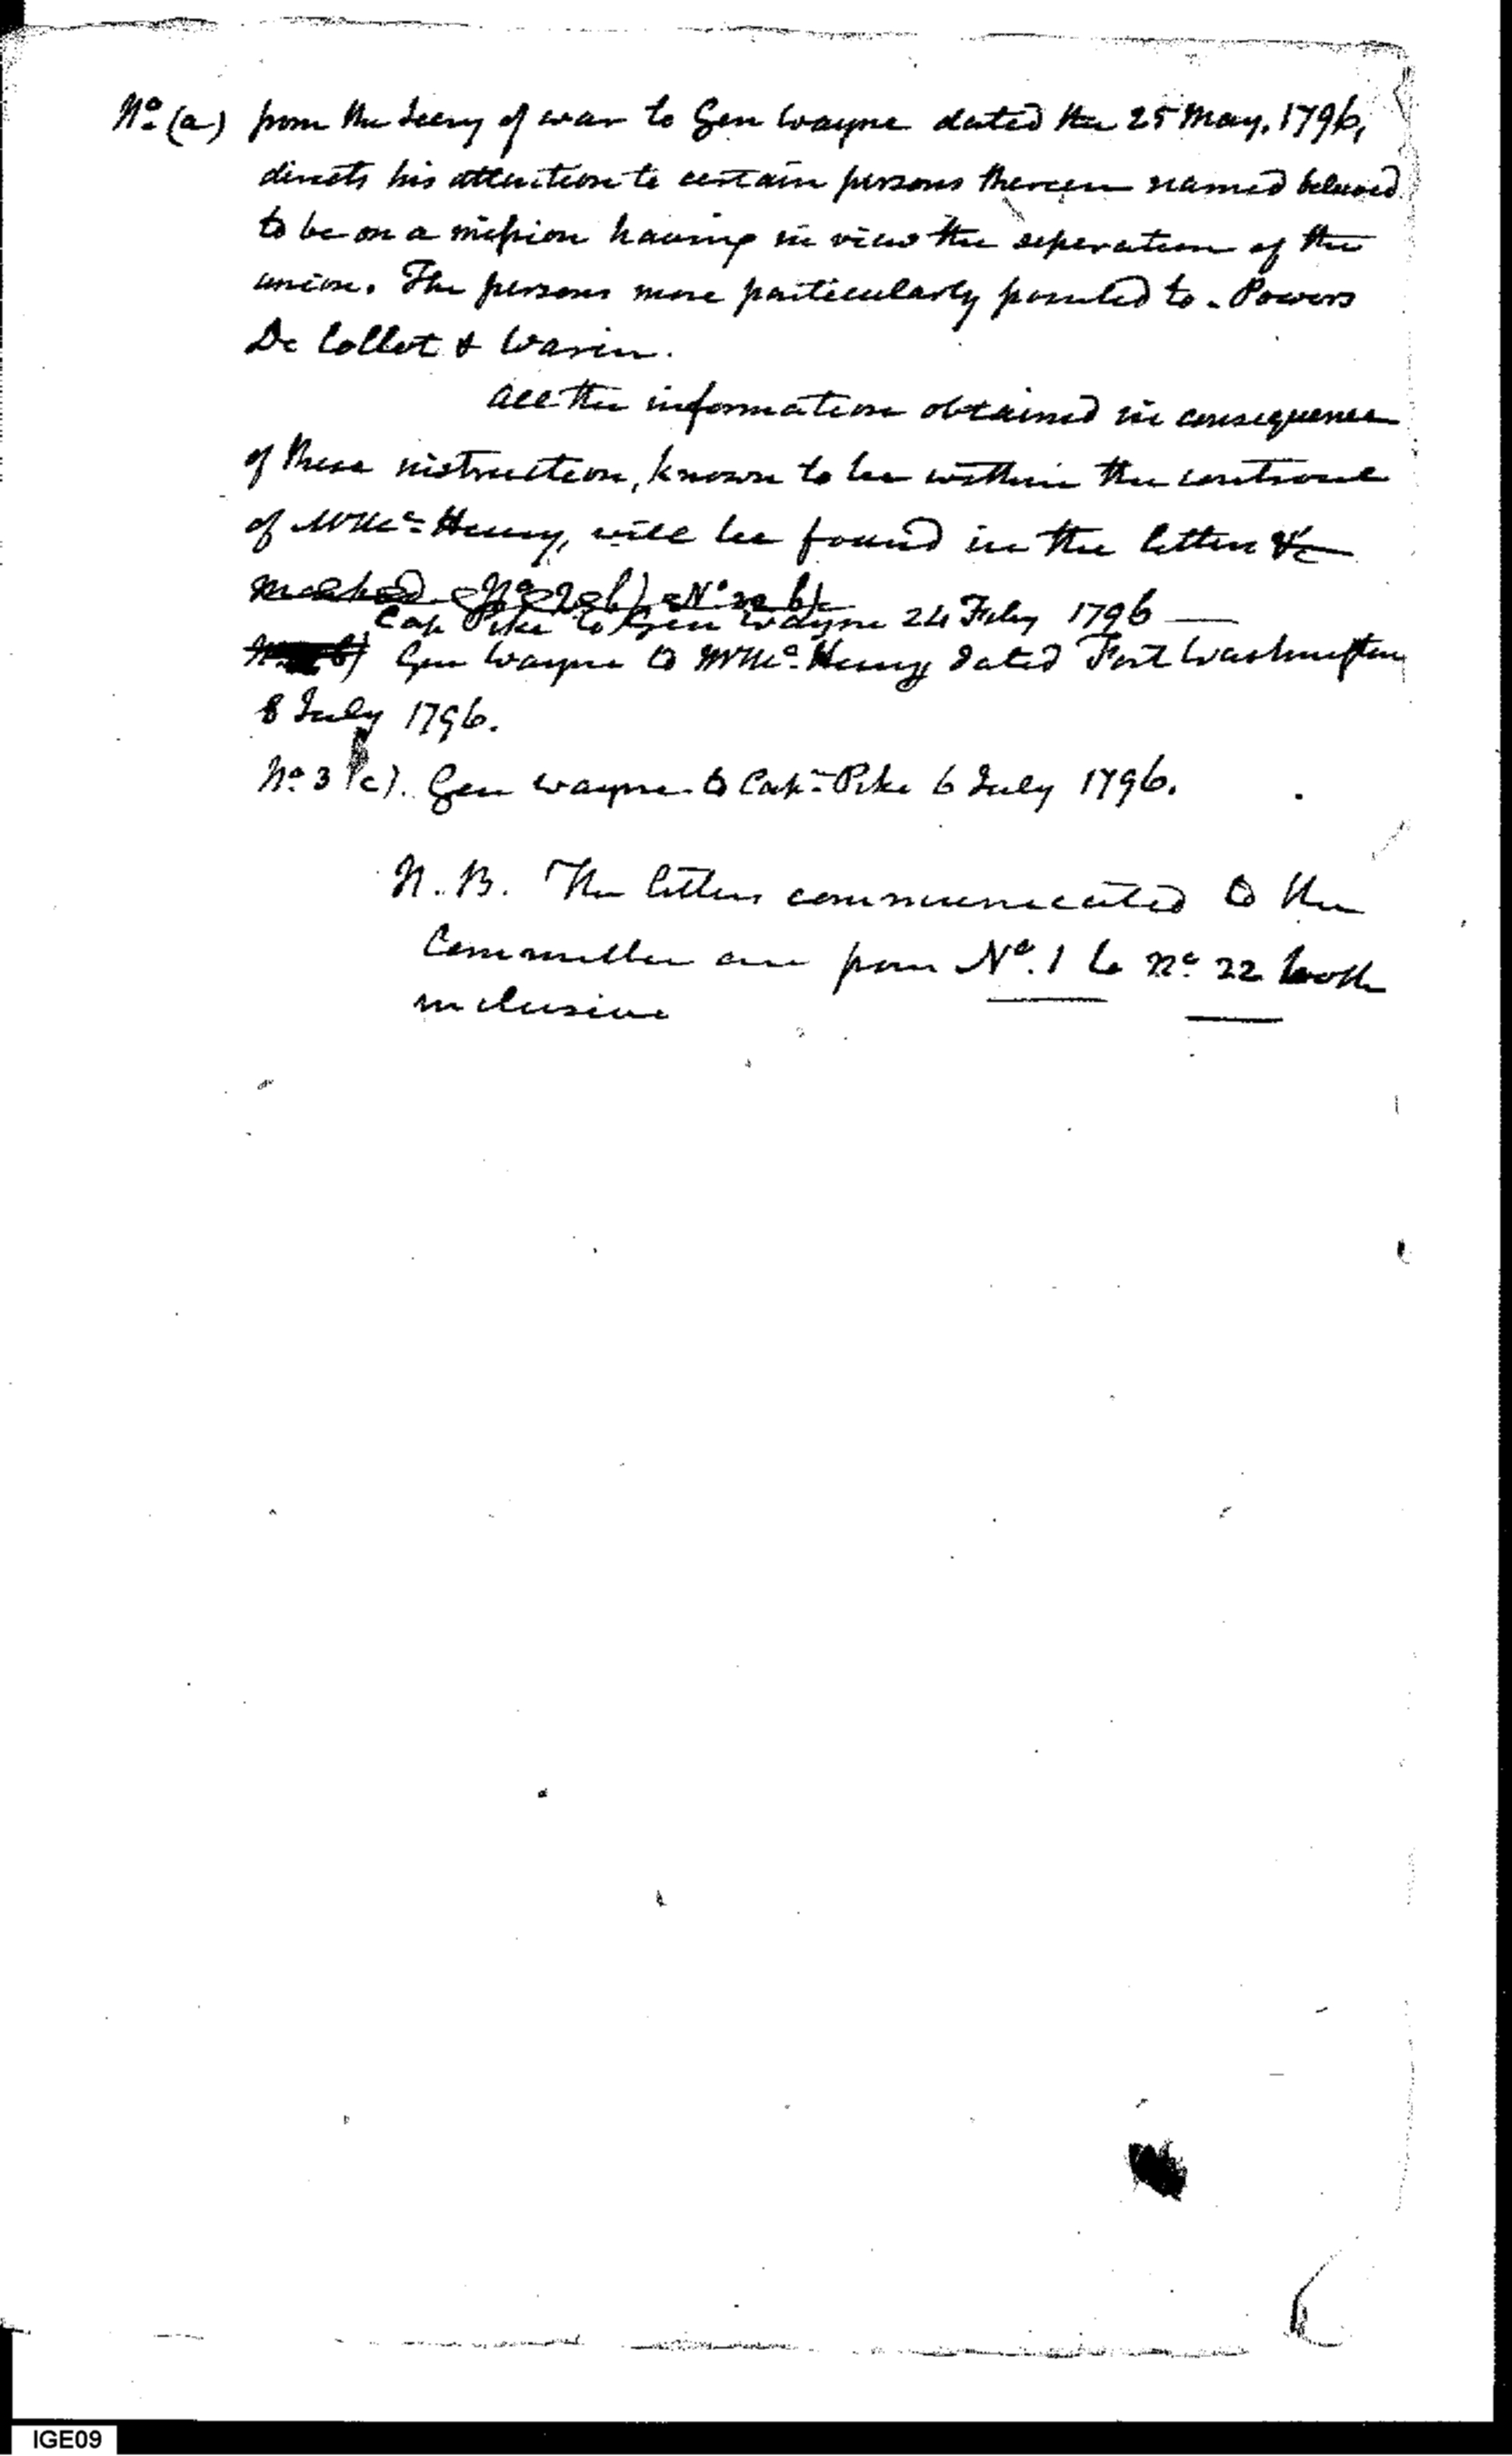 No. (a) from the Secry of war to Gen Wayne dated the 25 May, 1796,
directs his attention to certain persons therein named believed
to be on a mission having in view the seperation of the
union. The persons more particularly pointed to - Powers
De Collot & Warin.
All the information obtained in consequence
of these instruction, known to be within the controul
of Mr Mc. Henry, will be found in the letters &c
marked No 2 b) No
Cap Pike to Gen Wayne 24 Feby 1796 —
b) Gen Wayne to Mr Mc. Henry dated Fort Washington
8 July 1796.
No. 3 (c). Gen Wayne to Capn. Pike 6 July 1796.
N.B. The letters communicated to the
Committee are from No. 1 to No. 22 both
inclusive
IGE09